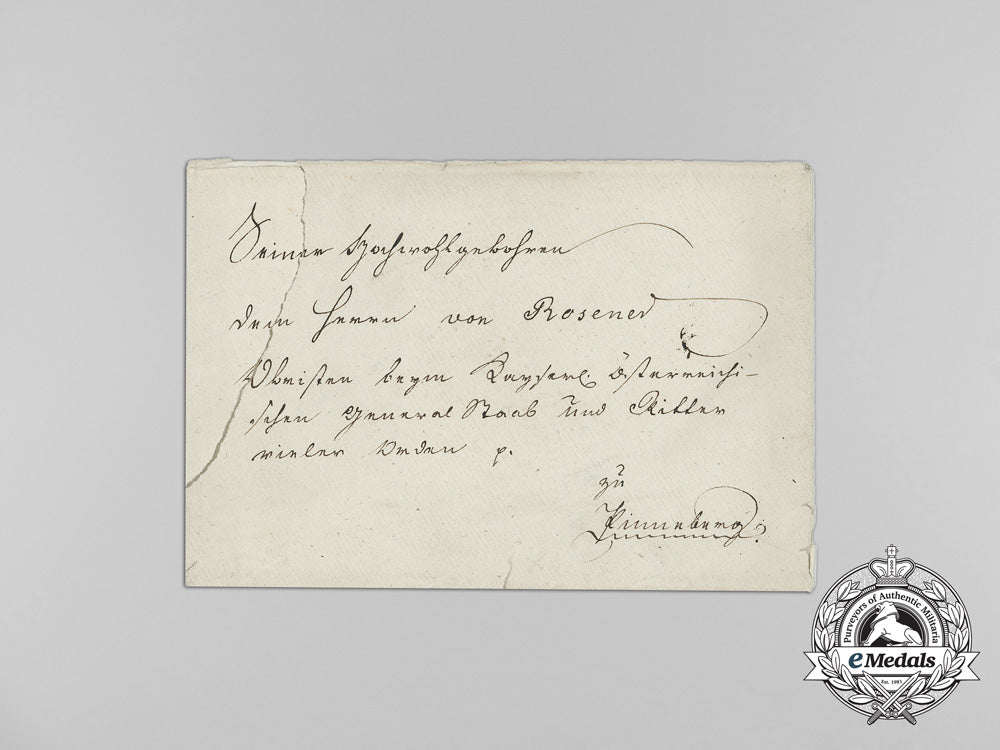 Seiner Hochwohlgebohren
dem Herrn von Rosener
Obristen beym Kayserl. Österreichi-
schen General Staab und Ritter
vieler Orden p.
zu
Pinneberg.
Purveyors of Authentic Militaria
eMedals
Est. 1981